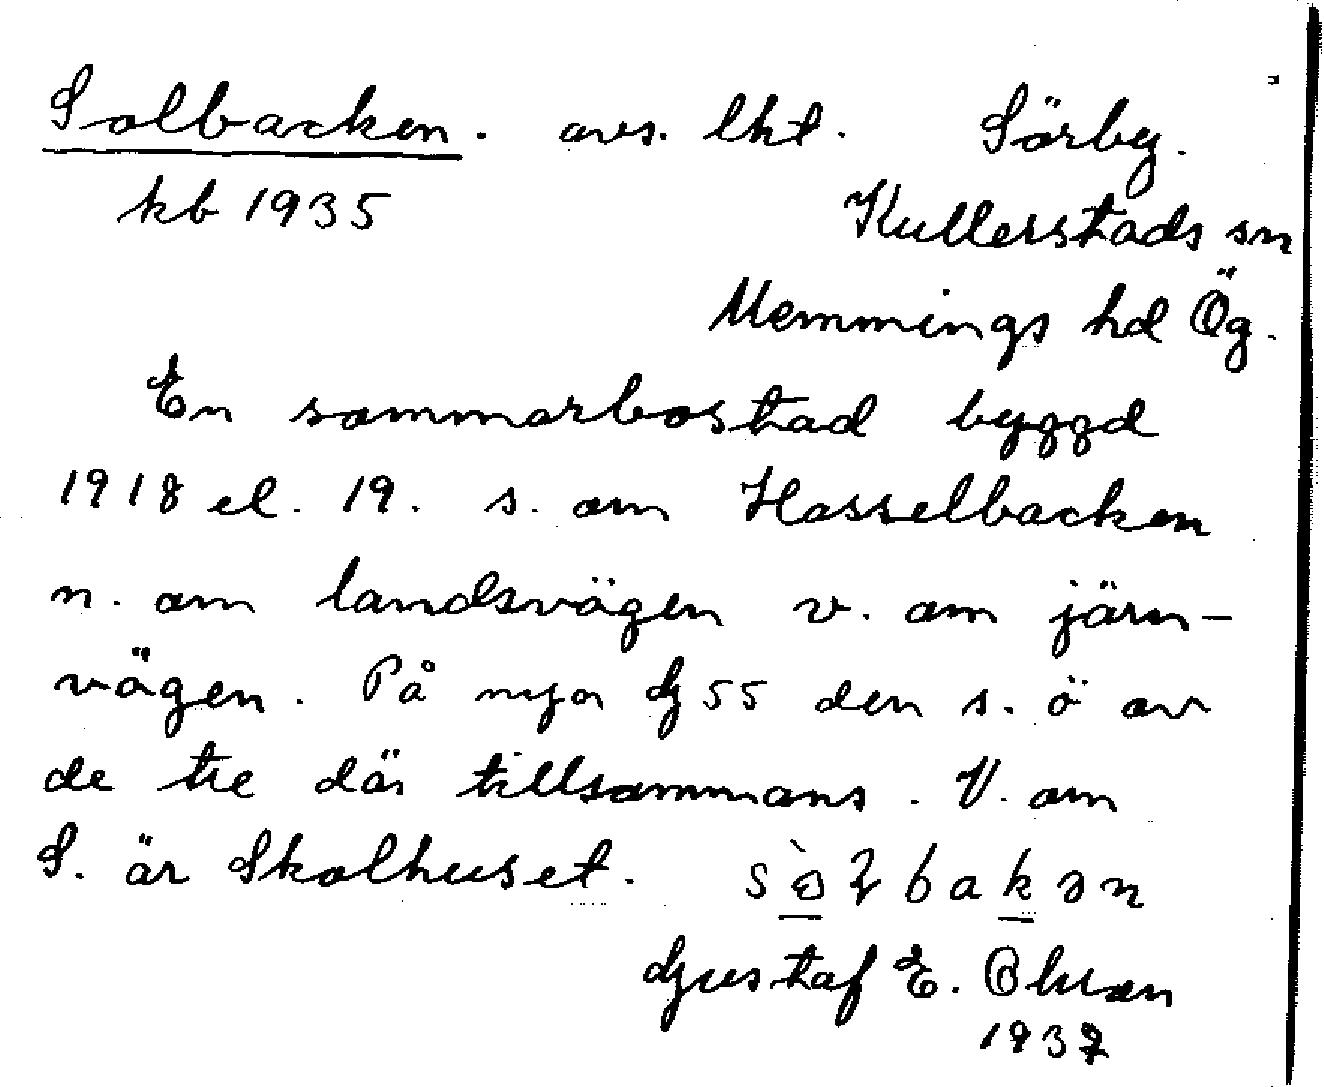 Solbacken. avs. lht. Sörby.
kb 1935 Kullerstads sn
Memmings hd Ög.
En sommarbostad byggd
1918 el. 19. s. om Hasselbacken
n. om landsvägen v. om järn-
vägen. På nya G 55 den s. ö av
de tre där tillsammans. V. om
S. är Skolhuset.
Gustaf E.
1937